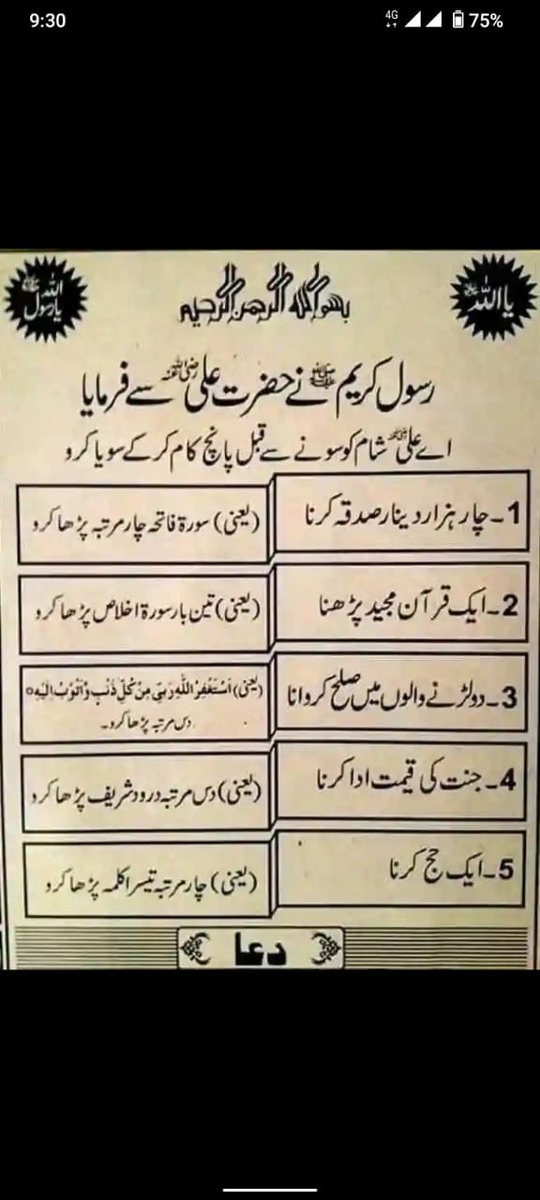 9:30
4G
75%
یا اللہ
بسم اللہ الرحمن الرحیم
یارسول اللہ ﷺ
رسول کریم ﷺ نے حضرت علی رضی اللہ عنہ سے فرمایا
اے علی رضی اللہ عنہ شام کو سونے سے قبل پانچ کام کر کے سویا کرو
1۔ چار ہزار دینار صدقہ کرنا
(یعنی) سورۃ فاتحہ چار مرتبہ پڑھا کرو
2۔ ایک قرآن مجید پڑھنا
(یعنی) تین بار سورۃ اخلاص پڑھا کرو
3۔ دو لڑنے والوں میں صلح کروانا
(یعنی) اَسْتَغْفِرُ اللّٰهَ رَبِّیْ مِنْ کُلِّ ذَنْبٍ وَّاَتُوْبُ اِلَیْهِ
دس مرتبہ پڑھا کرو۔
4۔ جنت کی قیمت ادا کرنا
(یعنی) دس مرتبہ درود شریف پڑھا کرو
5۔ ایک حج کرنا
(یعنی) چار مرتبہ تیسرا کلمہ پڑھا کرو
دعا